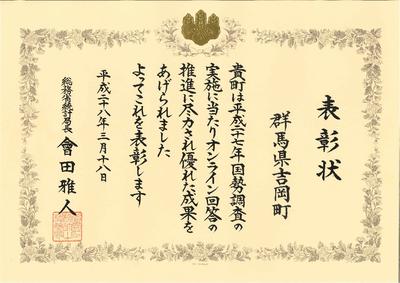 表彰状
群馬県吉岡町
貴町は平成二十七年国勢調査の
実施に当たりオンライン回答の
推進に尽力され優れた成果を
あげられました
よってこれを表彰します
平成二十八年三月十八日
総務省統計局長 會田雅人